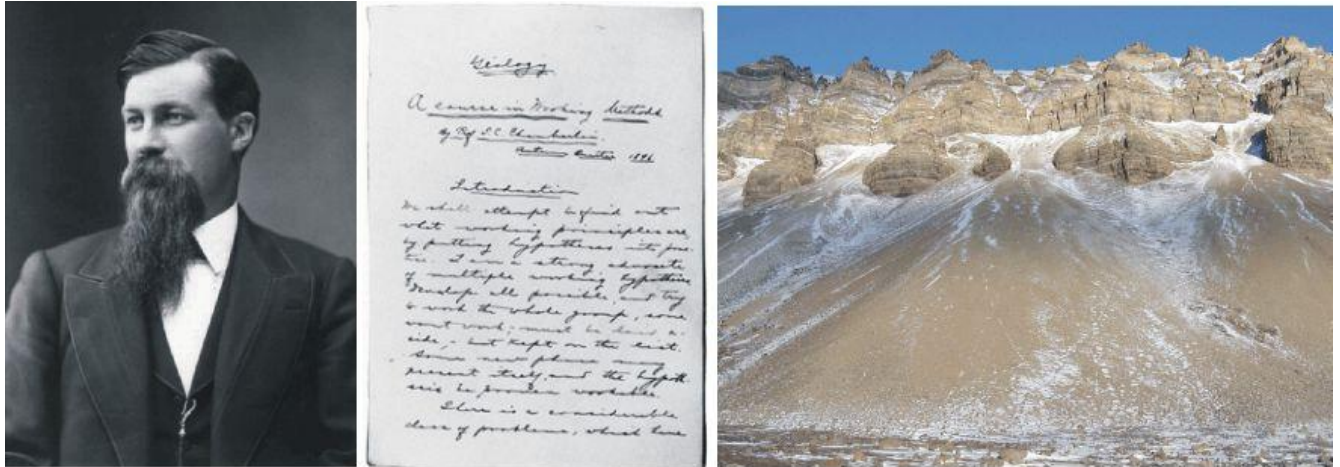 Geology
A course in Working Methods
by Prof T.C. Chamberlin.
Autumn Quarter 1896
Introduction
We shall attempt to find out
what working principles are,
by putting hypotheses into prac-
tice. I am a strong advocate
of multiple working hypotheses
Develope all possible, and try
to work the whole group, some
wont work - must be laid a-
side, - but kept on the list.
Some new phase may
present itself, and the hypoth-
esis be proven workable.
There is a considerable
class of problems, which have